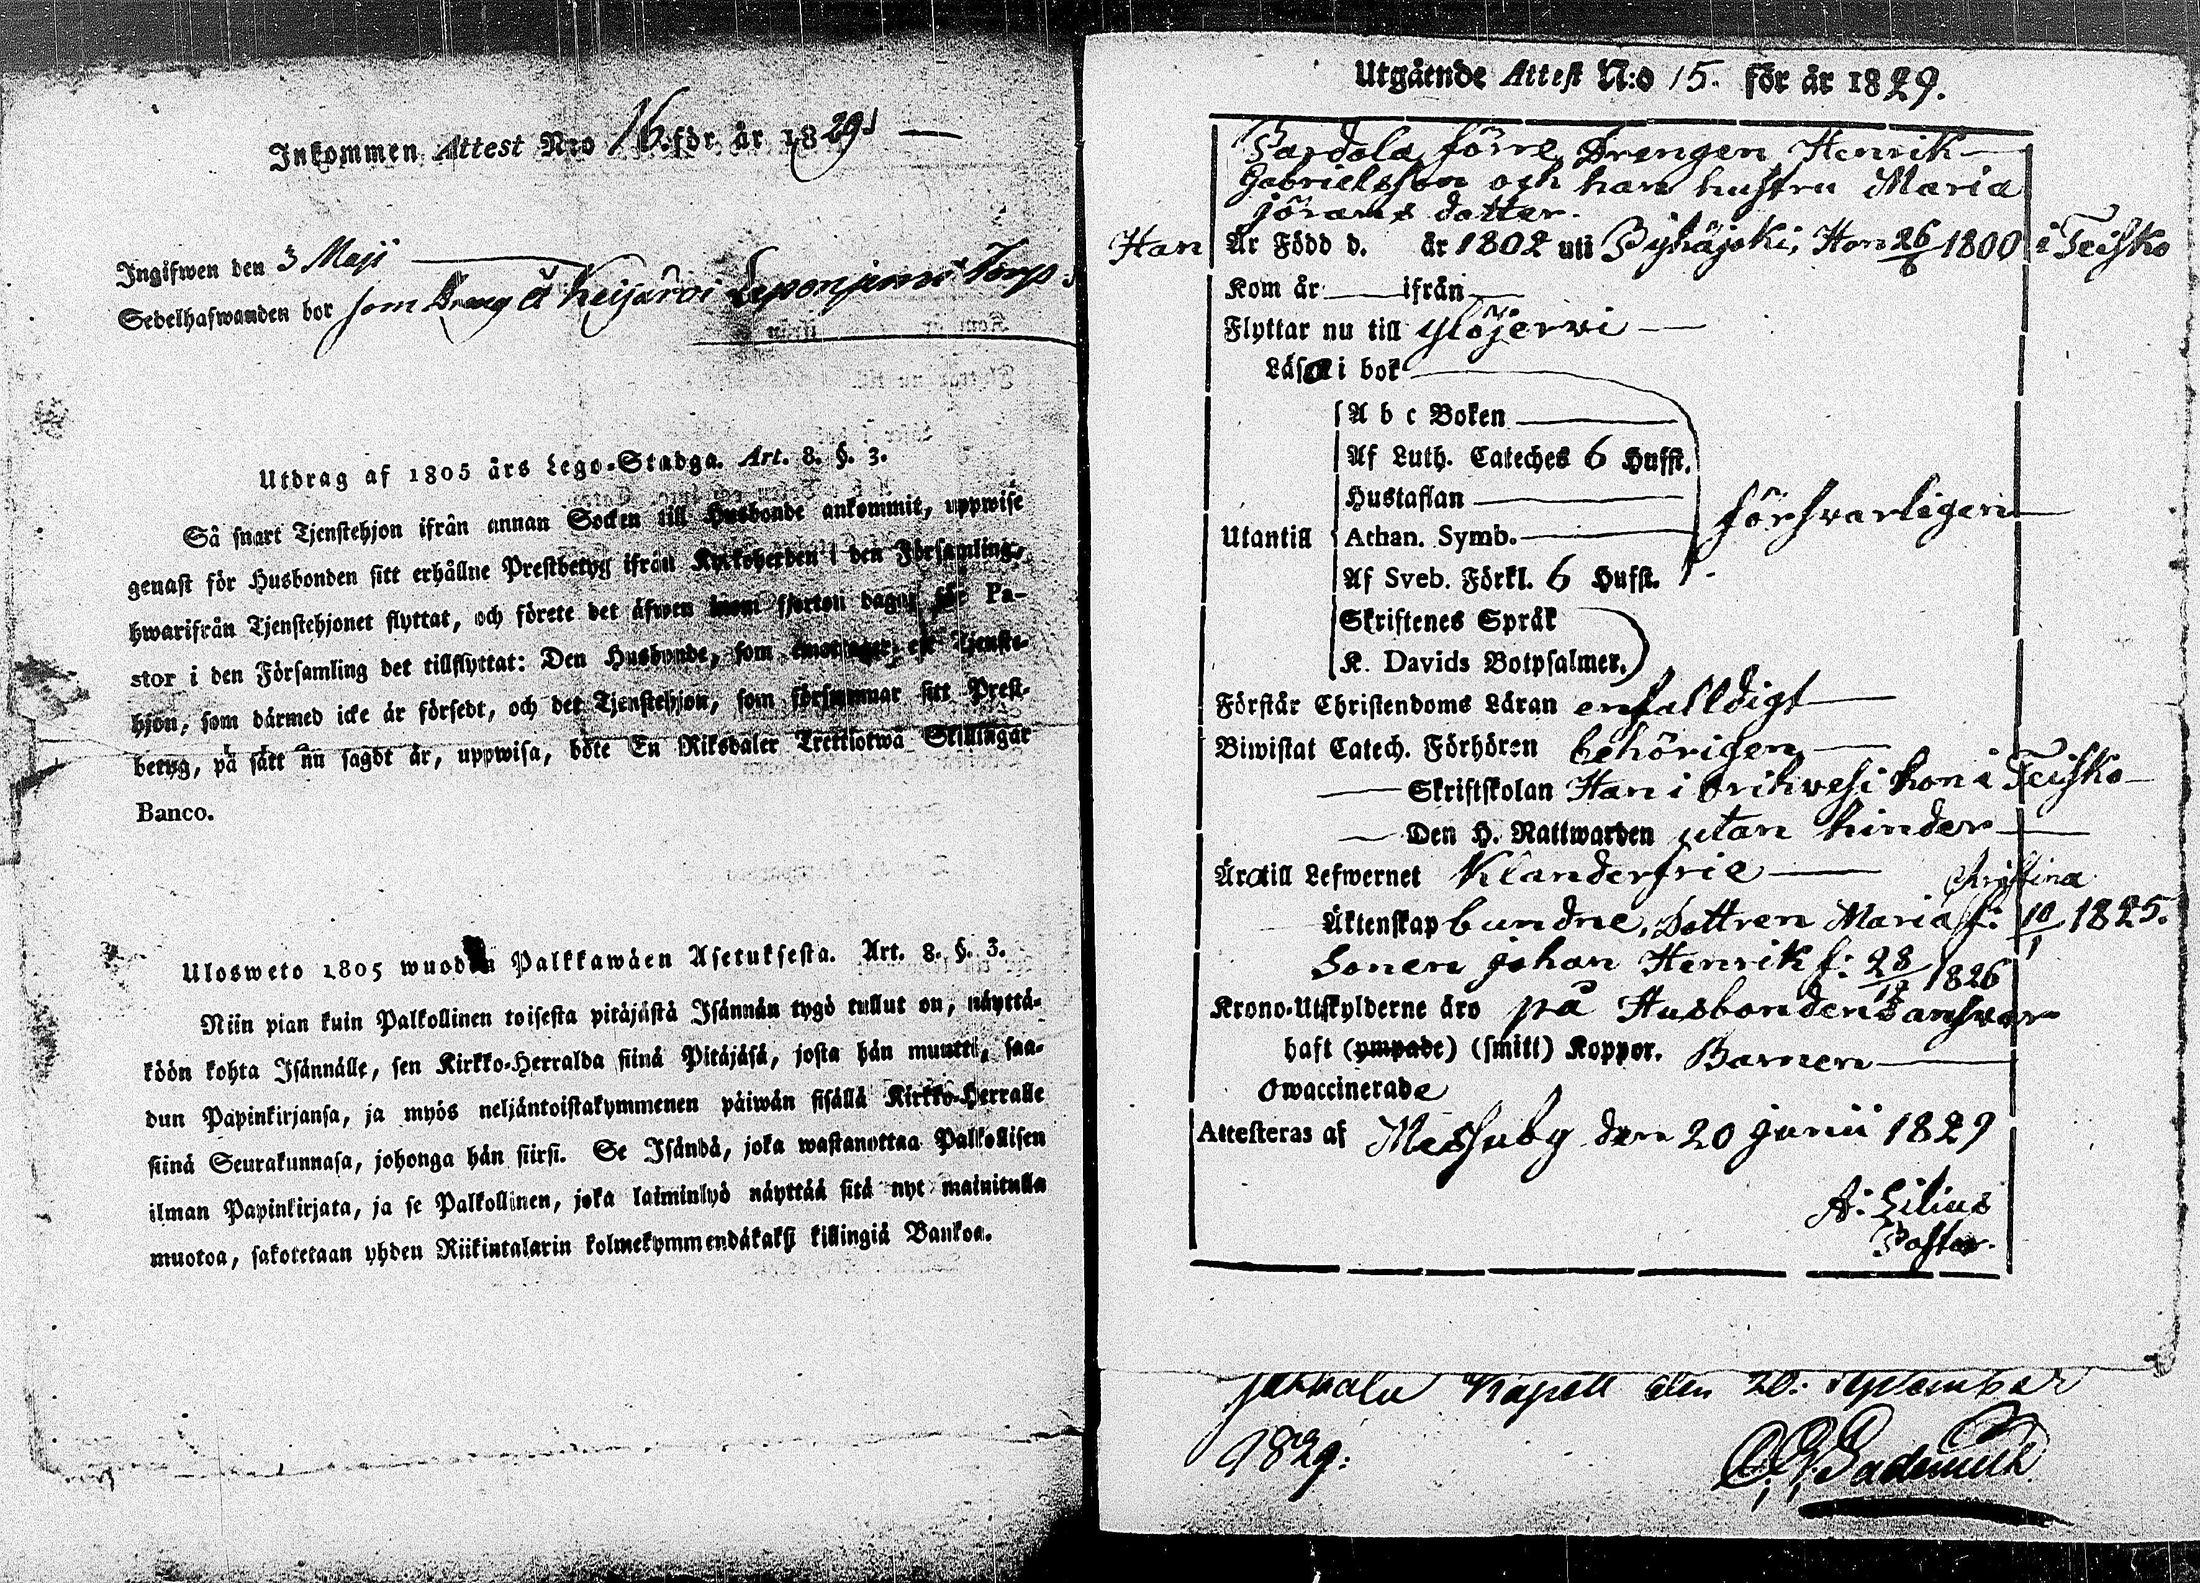 Inkommen Attest N:o 16. för år 1829
Ingifwen den 3 Maji
Sedelhafwanden bor som Dreng å Keijärvi Leponjemi Torp
Utdrag af 1805 års Lego-Stadga. Art. 8. §. 3.
Så snart Tjenstehjon ifrån annan Socken till Husbonde ankommit, uppwise
genast för Husbonden sitt erhållne Prestbetyg ifrån Kyrkoherden i den Församling,
hwarifrån Tjenstehjonet flyttat, och förete det äfwen inom fjorton dagar för Pa-
stor i den Församling det tillflyttat: Den Husbonde, som emottager ett Tjenste-
hjon, som därmed icke är försedt, och det Tjenstehjon, som försummar sitt Prest-
betyg, på sätt nu sagdt är, uppwisa, böte En Riksdaler Trettiotwå Skillingar
Banco.
Ulosweto 1805 wuoden Palkkawäen Asetuksesta. Art. 8. §. 3.
Niin pian kuin Palkollinen toisesta pitäjästä Isännän tygö tullut on, näyttä-
köön kohta Isännälle, sen Kirkko-Herralda siinä Pitäjäsä, josta hän muutti, saa-
dun Papinkirjansa, ja myös neljäntoistakymmenen päiwän sisällä Kirkko-Herralle
siinä Seurakunnasa, johonga hän siirsi. Se Isändä, joka wastanottaa Palkollisen
ilman Papinkirjata, ja se Palkollinen, joka laiminlyö näyttää sitä nyt mainitulla
muotoa, sakotetaan yhden Riikintalarin kolmekymmendäkaksi killingiä Bankoa.
Utgående Attest N:o 15. för år 1829.
Pardola förre Drengen Henrik
Gabrielsson och hans hustru Maria
Jörans dotter.
Han Är Född d. år 1802 uti Pyhäjoki, Hon 26/6 1800 i Teisko
Kom år ifrån
Flyttar nu till Ylöjerwi
Läsa i bok
A b c Boken
Af Luth. Cateches 6 Hufst.
Hustaflan
Utantill Athan. Symb. försvarligen
Af Sveb. Förkl. 6 Hufst.
Skriftenes Språk
K. Davids Botpsalmer.
Förstår Christendoms Läran enfalldigt
Biwistat Catech. Förhören behörigen
Skriftskolan Han i Orihvesi hon i Teisko
Den H. Nattwarden utan hinder
Ära till Lefwernet Klanderfrie Christina
Äktenskap bundne, Dottren Maria f: 10/1 1825.
Sonen Johan Henrik f: 28/12 1826
Krono-Utskylderne äro på Husbondens answar
haft (ympade) (smitt) Koppor. Barnen
owaccinerade
Attesteras af Messuby den 20 Junii 1829
A: Lilius
Pastor.
Kapell den 20: September
1829: